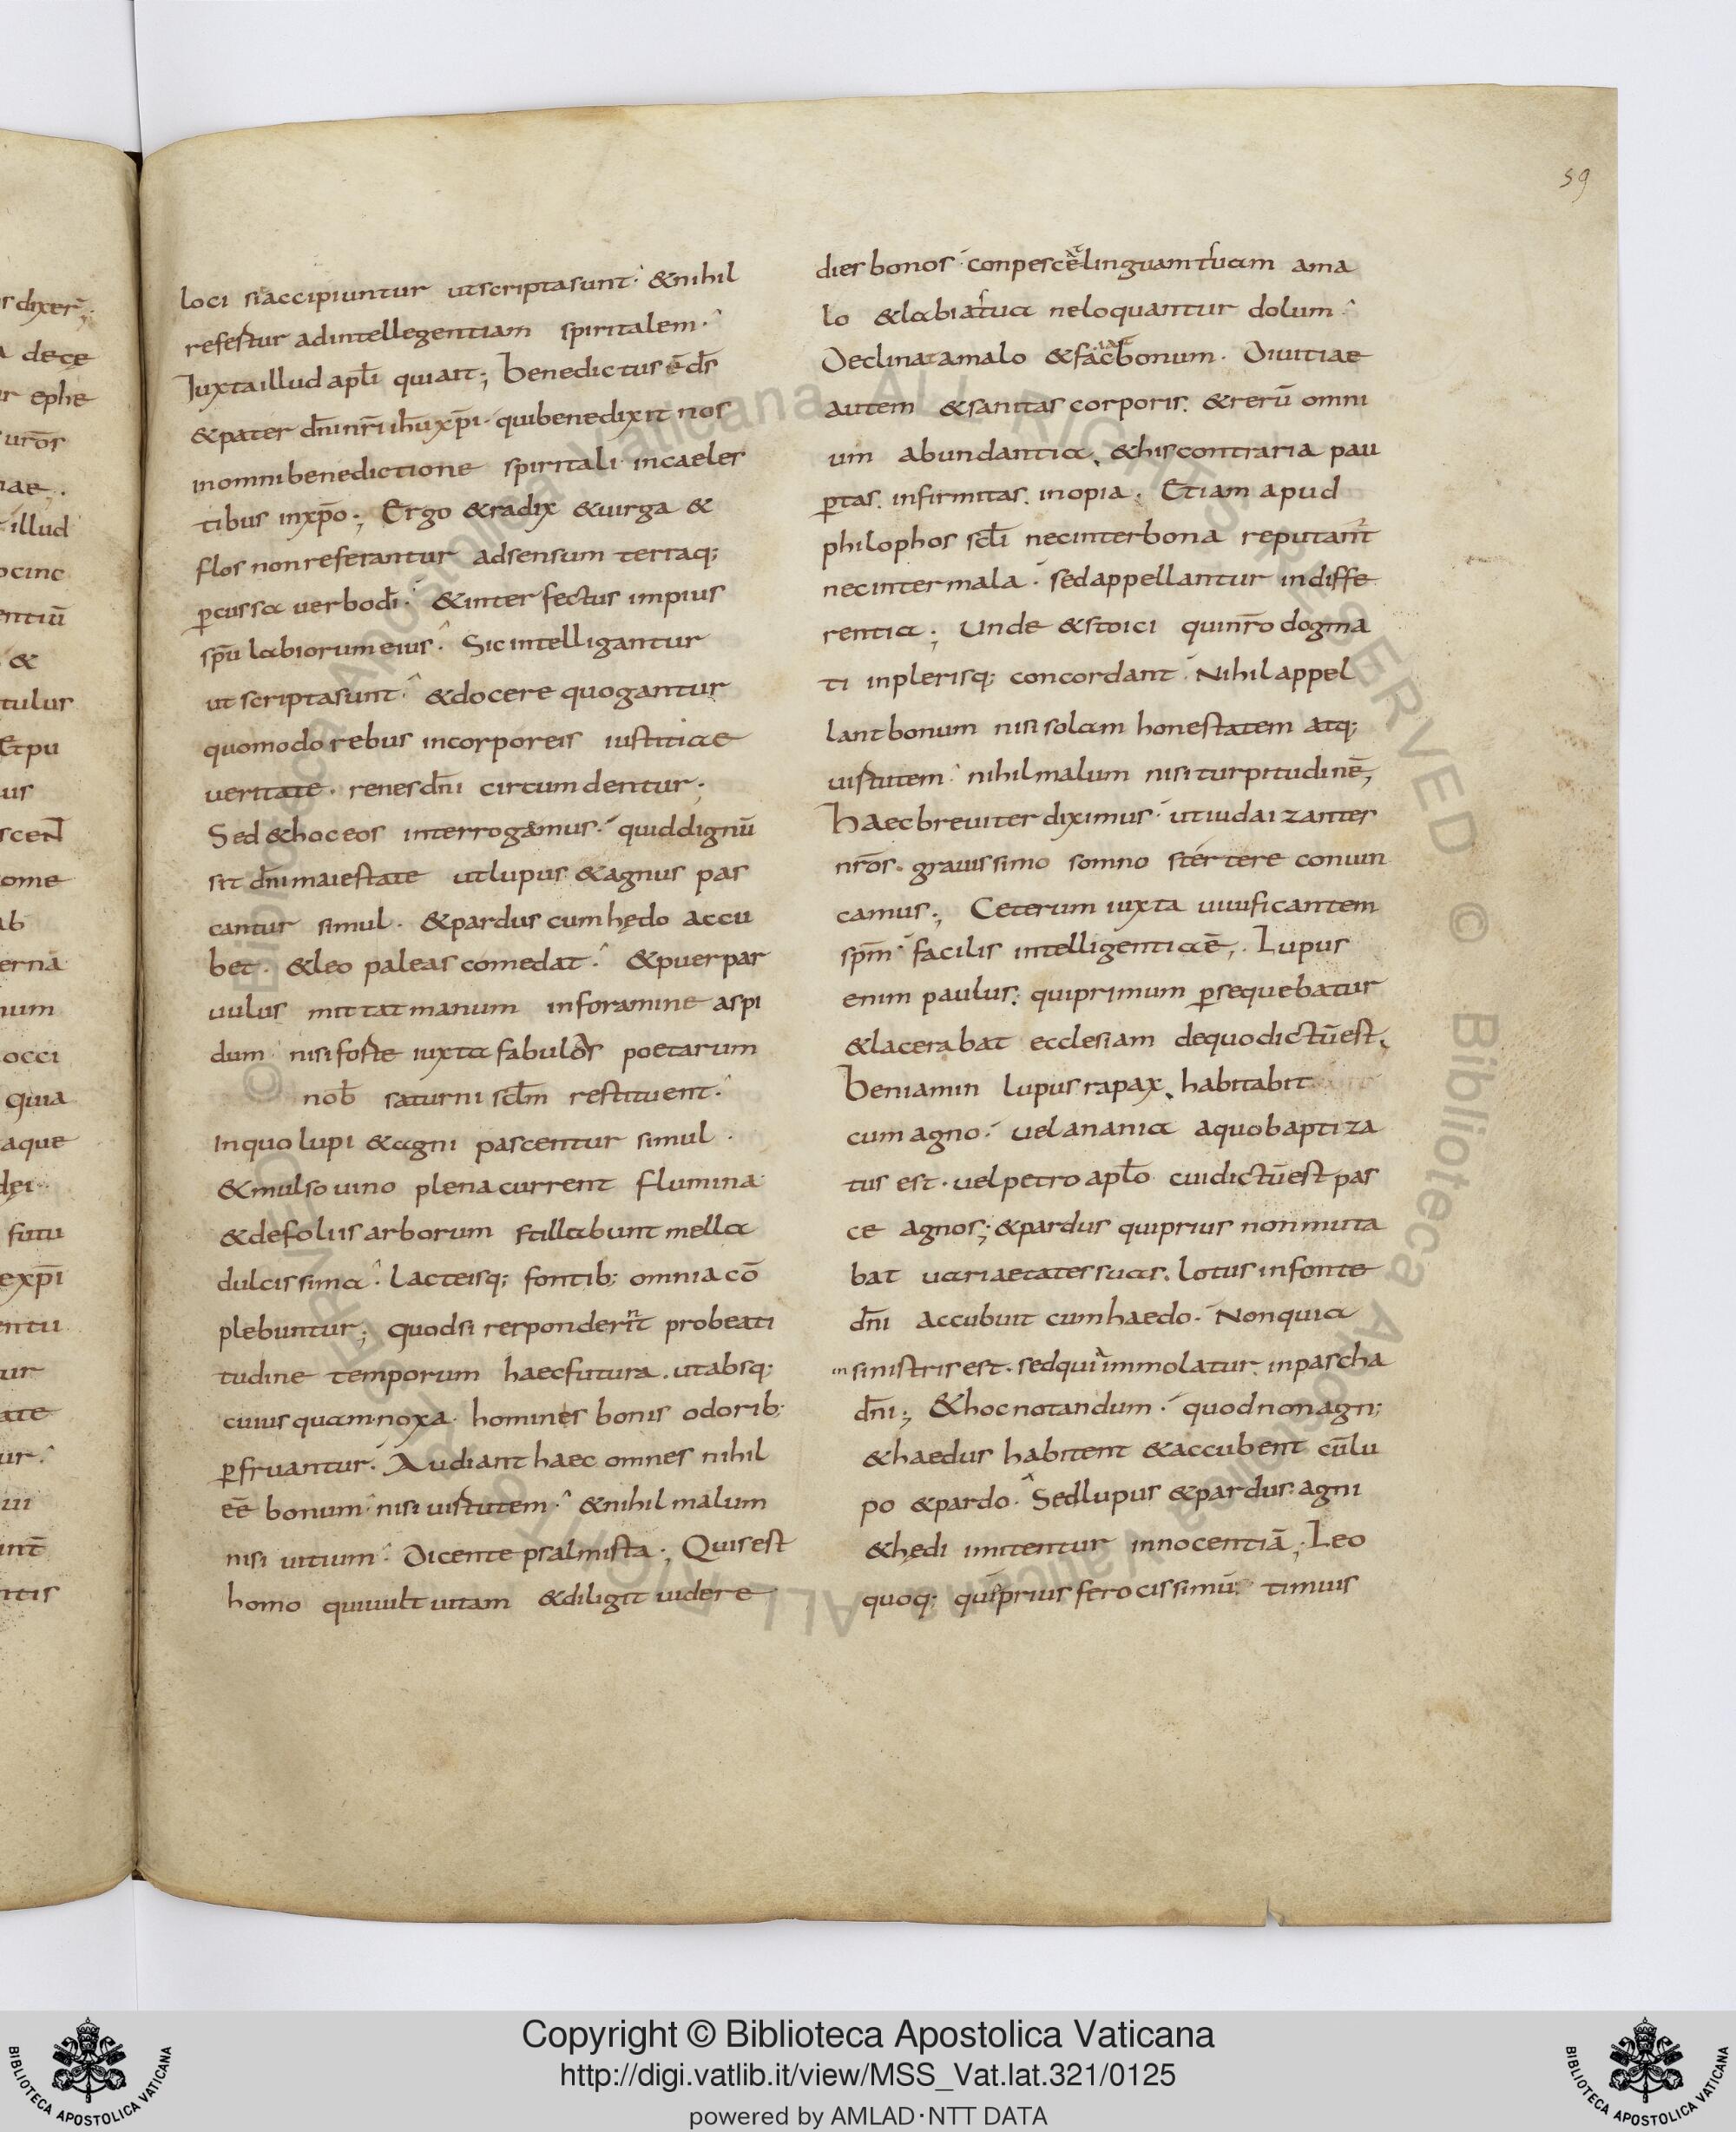 59
loci si accipiuntur ut scripta sunt. & nihil
refertur ad intellegentiam spiritalem.
Iuxta illud apłi qui ait; Benedictus ē ds̄
& pater dn̄i nr̄i ih̄u xp̄i. qui benedixit nos
in omni benedictione spiritali in caeles
tibus in xp̄o; Ergo & radix & uirga &
flos non referantur ad sensum terraq;
ꝑcussa uerbo dī. & interfectus impius
sp̄u labiorum eius. Sic intelligantur
ut scripta sunt. & docere quogantur
quomodo rebus incorporeis iustitiae
ueritate. renes dn̄i circumdentur;
Sed & hoc eos interrogamus. quid dignū
sit dn̄i maiestate ut lupus & agnus pas
cantur simul. & pardus cum hędo accu
bet. & leo paleas comedat. & puer par
uulus mittat manum in foramine aspi
dum nisi forte iuxta fabulas poetarum
nob̄ saturni scłm restituent.
In quo lupi & agni pascentur simul.
& mulso uino plena current flumina
& de foliis arborum stillabunt mella
dulcissima. lacteisq; fontib; omnia cō
plebuntur; quod si responderint pro beati
tudine temporum haec futura. ut absq;
cuiusquam noxa. homines bonis odorib;
ꝑfruantur. Audiant haec omnes nihil
eē bonum nisi uirtutem. & nihil malum
nisi uitium. Dicente psalmista; Quis est
homo qui uult uitam & diligit uidere
dies bonos. conpescē linguam tuam a ma
lo & labia tua ne loquantur dolum.
Declinat a malo & fac bonum. Diuitiae
autem & sanitas corporis. & rerū omni
um abundantia. & his contraria pau
ꝑtas. infirmitas. inopia. Etiam apud
philophos scłi nec inter bona reputant
nec inter mala. sed appellantur indiffe
rentia; Unde & stoici qui nr̄o dogma
ti in plerisq; concordant. Nihil appel
lant bonum nisi solam honestatem atq;
uirtutem. nihil malum nisi turpitudinē;
haec breuiter diximus. ut iudaizantes
nr̄os. grauissimo somno stertere conuin
camus; Ceterum iuxta uiuificantem
sp̄m facilis intelligentia ē; Lupus
enim paulus. qui primum ꝑsequebatur
& lacerabat ecclesiam de quo dictū est.
beniamin lupus rapax. habitabit
cum agno. uel anania a quo baptiza
tus est. uel petro apło cui dictū est pas
ce agnos; & pardus qui prius non muta
bat uarietates suas. lotus in fonte
dn̄i accubuit cum haedo. Non quia
in sinistris est. sed qui immolatur in pascha
dn̄i; & hoc notandum. quod non agn;
& haedus habitent & accubent cū lu
po & pardo. Sed lupus & pardus. agni
& hędi imitentur innocentiā; Leo
quoq; qui prius ferocissimus timuis
Copyright © Biblioteca Apostolica Vaticana
http://digi.vatlib.it/view/MSS_Vat.lat.321/0125
powered by AMLAD·NTT DATA